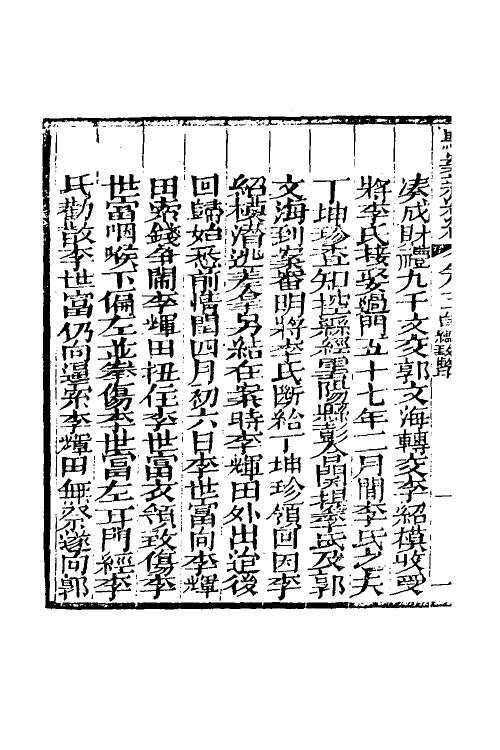 湊成財禮九千文交郭文海轉交李紹模收受
將李氏接娶過門五十七年二月間李氏之夫
丁坤珍查知控縣經雲陽縣彭人關提李氏及郭
文海到案審明將李氏斷給丁坤珍領回因李
紹模潛逃差拿另結在案時李輝田外出迨後
回歸始悉前情閏四月初六日李世富向李輝
田索錢爭鬧李輝田扭住李世富衣領致傷李
世富咽喉下偏左並拳傷李世富左耳門經李
氏勸散李世富仍向逼索李輝田無奈遂向郭